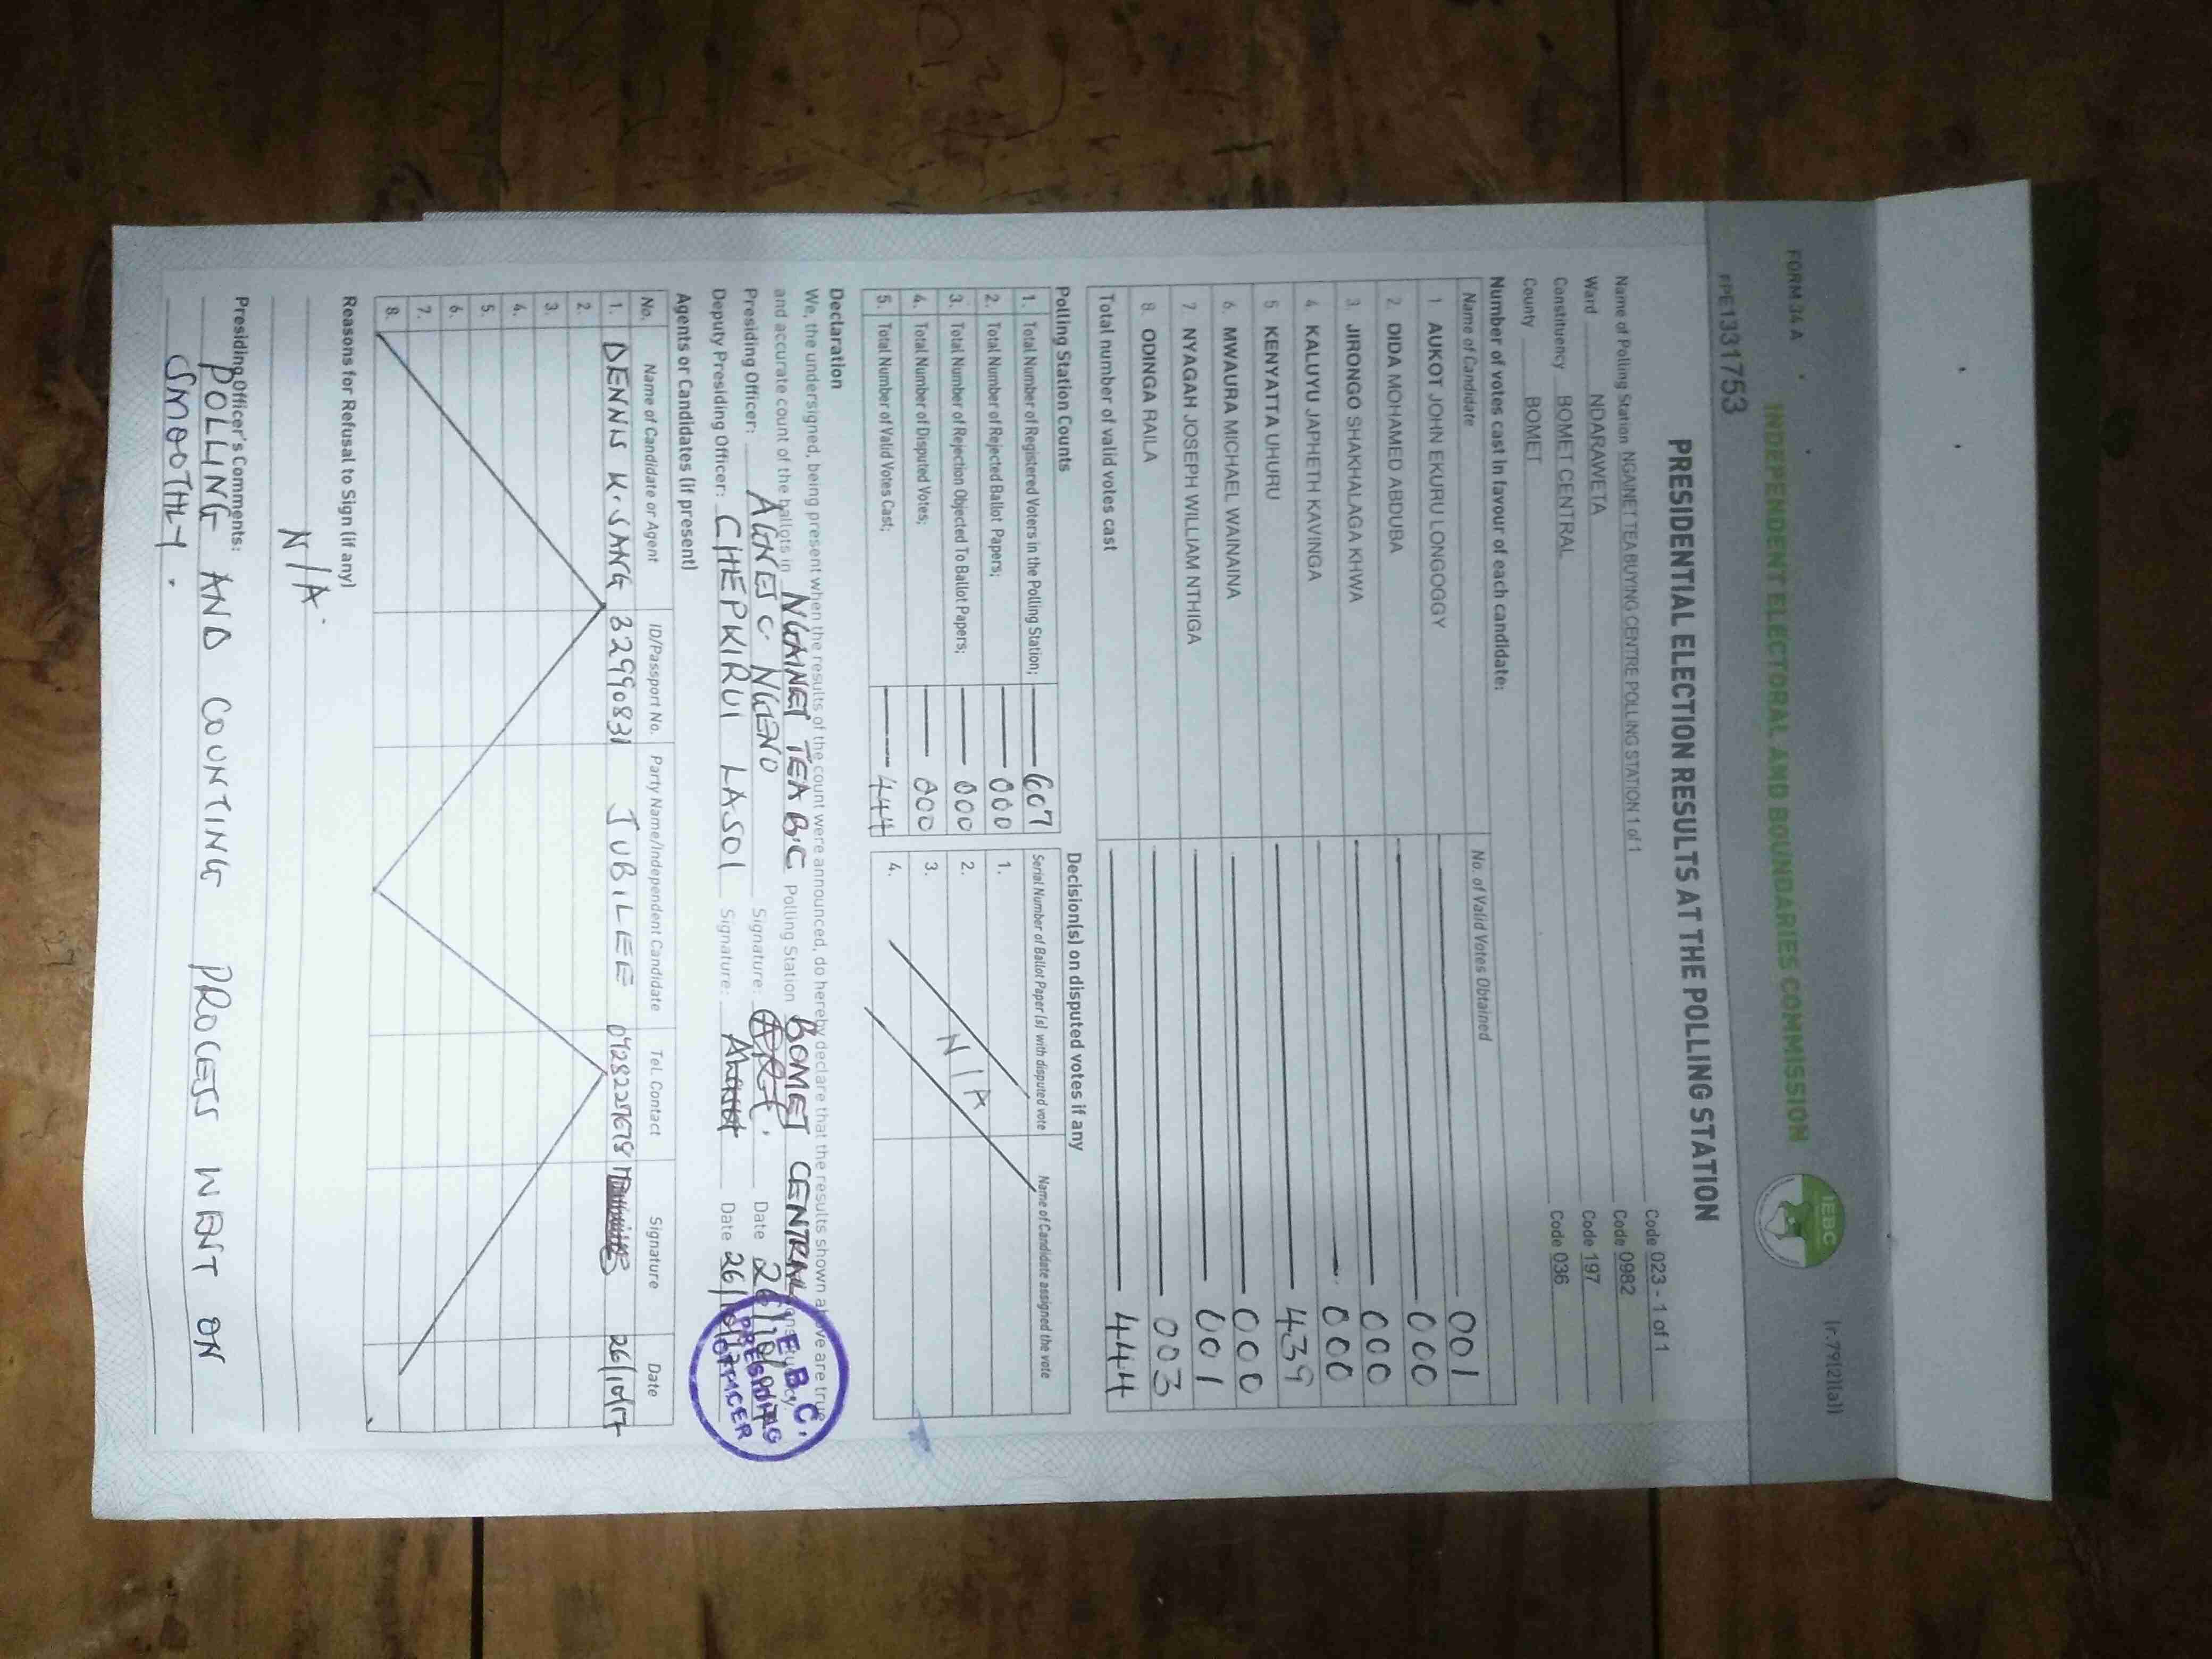 FORM 34 A
(r.79(2)(a))
INDEPENDENT ELECTORAL AND BOUNDARIES COMMISSION
IEBC
PRESIDENTIAL ELECTION RESULTS AT THE POLLING STATION
Name of Polling Station NGAINET TEA BUYING CENTRE POLLING STATION 1 of 1 Code 023 - 1 of 1
Ward NDARAWETA Code 0982
Constituency BOMET CENTRAL Code 197
County BOMET Code 036
Number of votes cast in favour of each candidate:
Name of Candidate No. of Valid Votes Obtained
1 AUKOT JOHN EKURU LONGOGGY 001
2. DIDA MOHAMED ABDUBA 000
3. JIRONGO SHAKHALAGA KHWA 000
4. KALUYU JAPHETH KAVINGA 000
5 KENYATTA UHURU 439
6. MWAURA MICHAEL WAINAINA 000
7. NYAGAH JOSEPH WILLIAM NTHIGA 001
8. ODINGA RAILA 003
Total number of valid votes cast 444
Polling Station Counts
1. Total Number of Registered Voters in the Polling Station; 607
2. Total Number of Rejected Ballot Papers; 000
3. Total Number of Rejection Objected To Ballot Papers; 000
4. Total Number of Disputed Votes; 000
5. Total Number of Valid Votes Cast; 444
Decision(s) on disputed votes if any
Serial Number of Ballot Paper(s) with disputed vote Name of Candidate assigned the vote
1.
2.
3.
4.
N/A
Declaration
We, the undersigned, being present when the results of the count were announced, do hereby declare that the results shown above are true
and accurate count of the ballots in NGAINET TEA B.C Polling Station BOMET CENTRAL Constituency
Presiding Officer: AGNES C. NGENO Signature: Date 26/10/2017
Deputy Presiding Officer: CHEPKIRUI LASOI Signature: Date 26/10/17
I E B C,
PRESIDING
OFFICER
Agents or Candidates (if present)
No. Name of Candidate or Agent ID/Passport No. Party Name/Independent Candidate Tel. Contact Signature Date
1. DENNIS K. SANG 32990831 JUBILEE 0728227678 26/10/17
2.
3.
4.
5.
6.
7.
8.
Reasons for Refusal to Sign (if any)
N/A.
Presiding Officer's Comments:
POLLING AND COUNTING PROCESS WENT ON
SMOOTHLY.